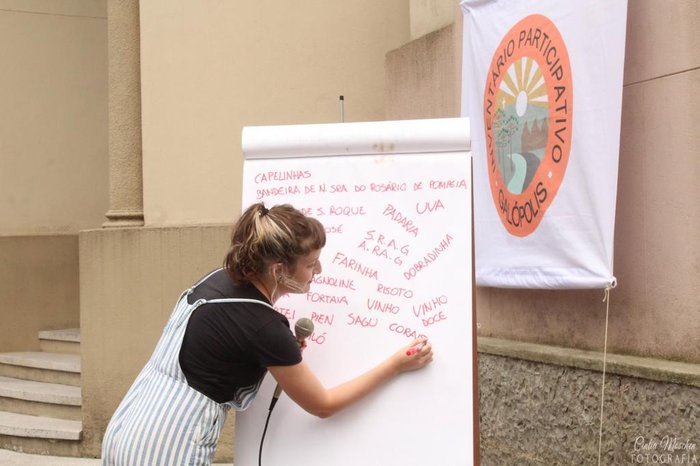 CAPELINHAS
BANDEIRA DE N. SRA DO ROSÁRIO DE POMPEIA
DE S. ROQUE
PADARIA
UVA
S.R.A.G
A.RA.G
DOBRADINHA
FARINHA
RISOTO
FORTAIA
VINHO
VINHO
DOCE
PIEN
SAGU
INVENTÁRIO PARTICIPATIVO
GALÓPOLIS
Cintia Moschen
FOTOGRAFIA